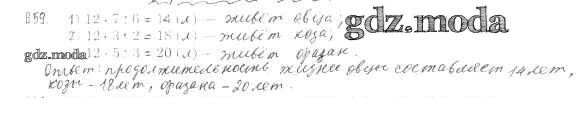 859. 1) 12 · 7 : 6 = 14 (л) – живёт овца,
2) 12 · 3 : 2 = 18 (л) – живёт коза,
gdz.moda
gdz.moda 12 · 5 : 3 = 20 (л) – живёт фазан.
Ответ: продолжительность жизни овцы составляет 14 лет,
козы – 18 лет, фазана – 20 лет.